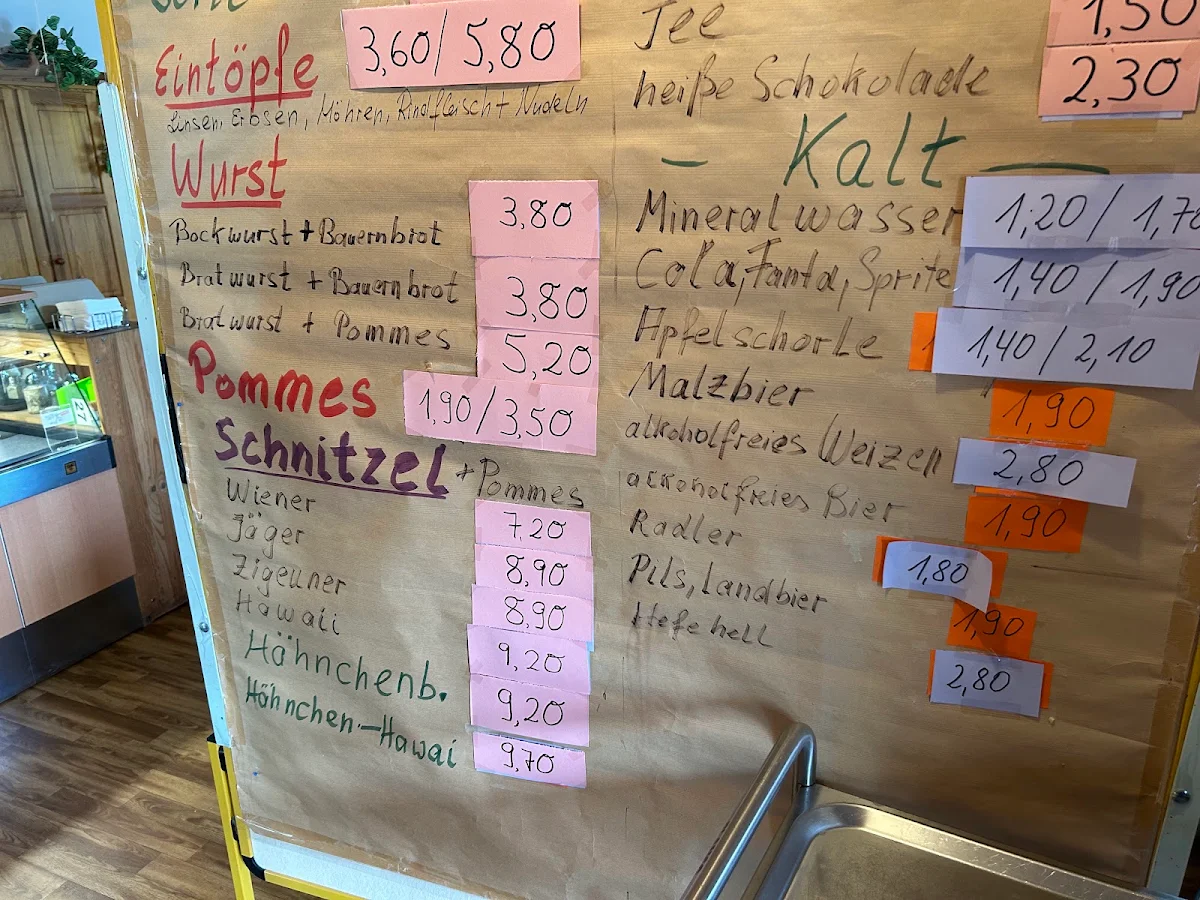 Eintöpfe 3,60/5,80
Linsen, Erbsen, Möhren, Rindfleisch + Nudeln
Wurst
Bockwurst + Bauernbrot 3,80
Bratwurst + Bauernbrot 3,80
Bratwurst + Pommes 5,20
Pommes 1,90/3,50
Schnitzel + Pommes
Wiener 7,20
Jäger 8,90
Zigeuner 8,90
Hawaii 9,20
Hähnchenb. 9,20
Höhnchen-Hawai 9,70
Tee 1,50
heiße Schokolade 2,30
- Kalt -
Mineralwasser 1,20/1,70
Cola, Fanta, Sprite 1,40/1,90
Apfelschorle 1,40/2,10
Malzbier 1,90
alkoholfreies Weizen 2,80
alkoholfreies Bier 1,90
Radler 1,80
Pils, Landbier 1,90
Hefe hell 2,80